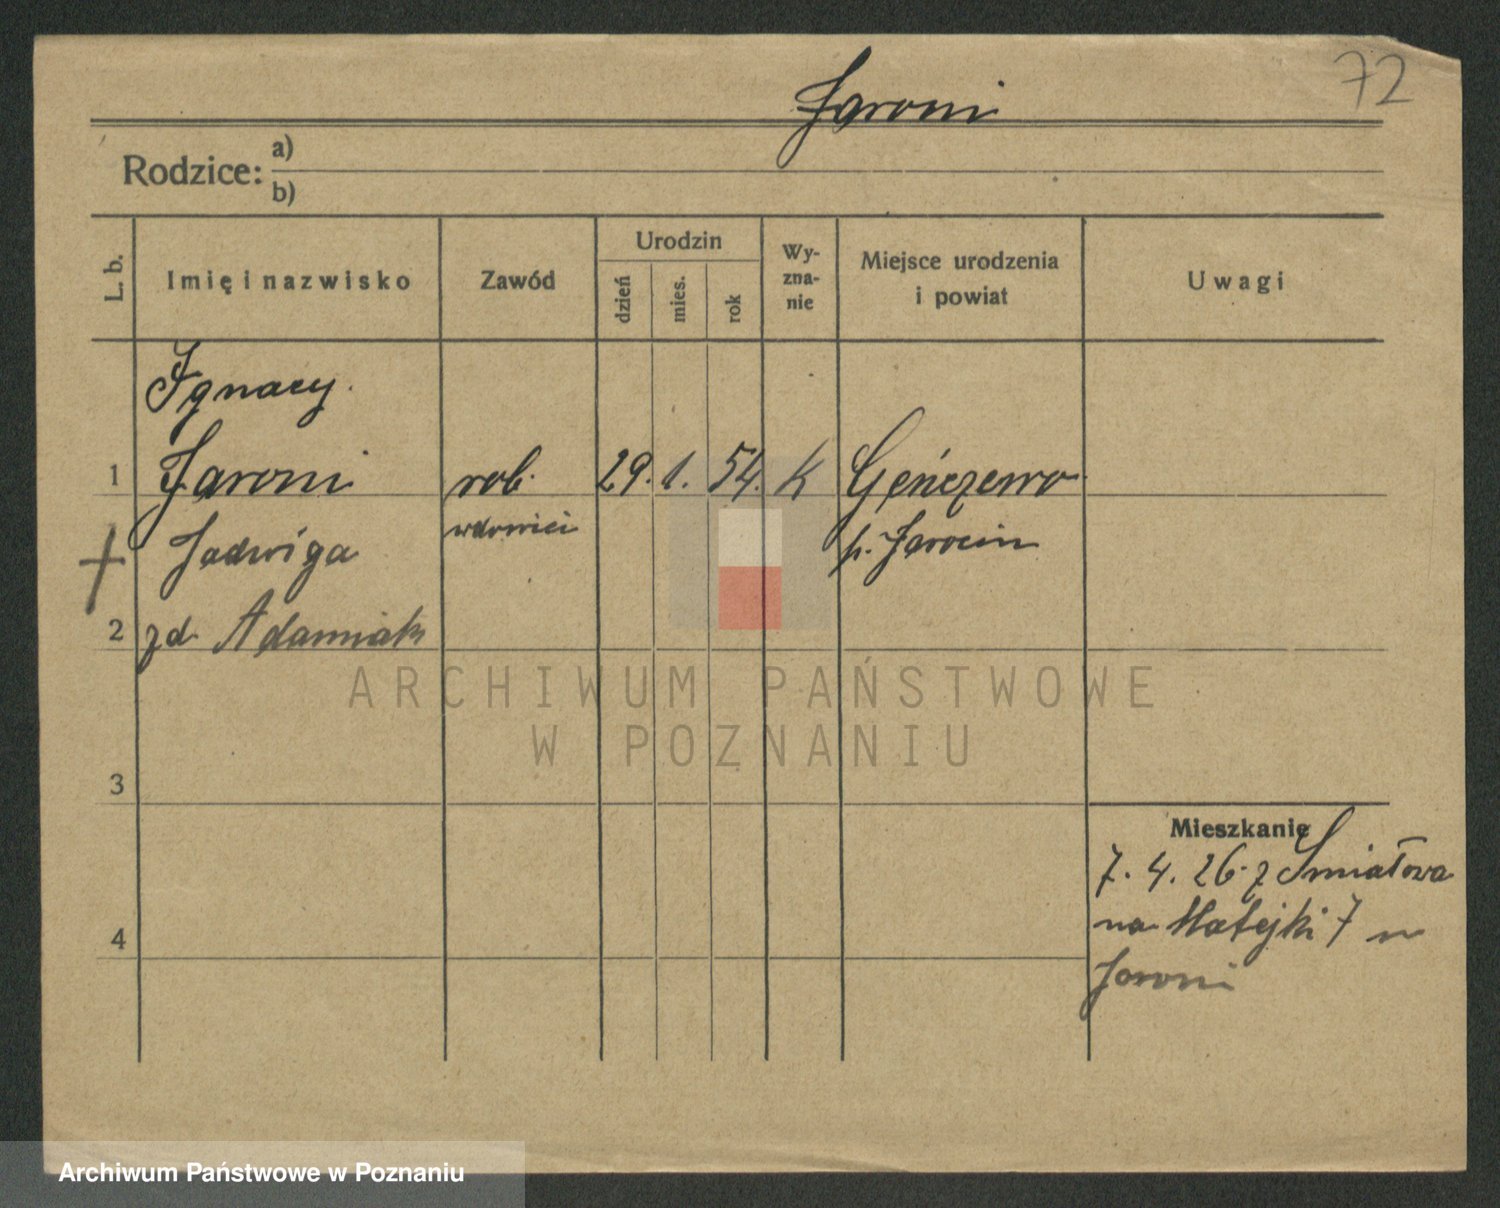 72
Jaroni
Rodzice: a)
b)
L. b.
Imię i nazwisko
Zawód
Urodzin
dzień
mies.
rok
Wy-
zna-
nie
Miejsce urodzenia
i powiat
Uwagi
Ignacy
1 Jaroni rob. 29. 1. 54. K
wdowiec
p. Jarocin
+ Jadwiga
2 zd. Adamiak
3
4
Mieszkanie
7. 4. 26. z Śmiałowa
na Matejki 7 u
Jaroni
ARCHIWUM PAŃSTWOWE
W POZNANIU
Archiwum Państwowe w Poznaniu